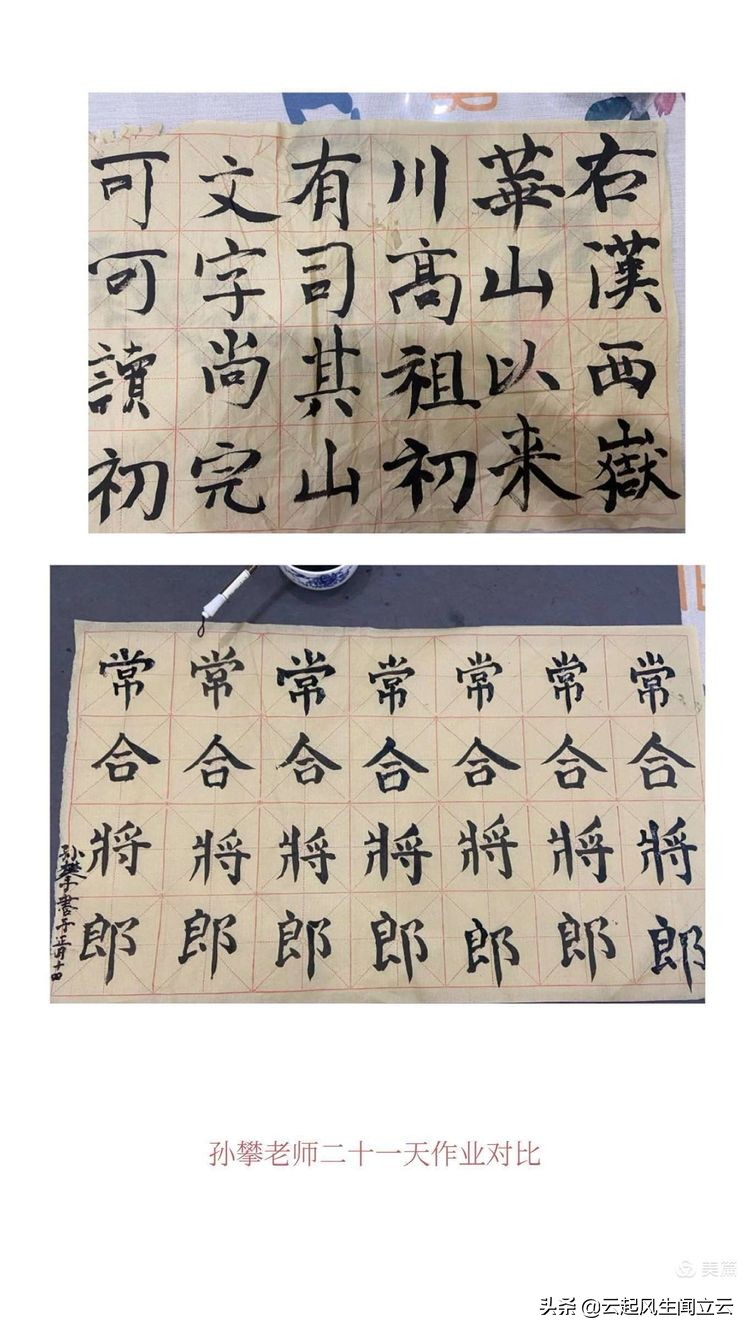 右漢西嶽
華山以来
川高祖初
有司其山
文字尚完
可可讀初
常合將郎
常合將郎
常合將郎
常合將郎
常合將郎
常合將郎
常合將郎
孙攀書于正月十四
孙攀老师二十一天作业对比
美篇
头条 @云起风生闻立云